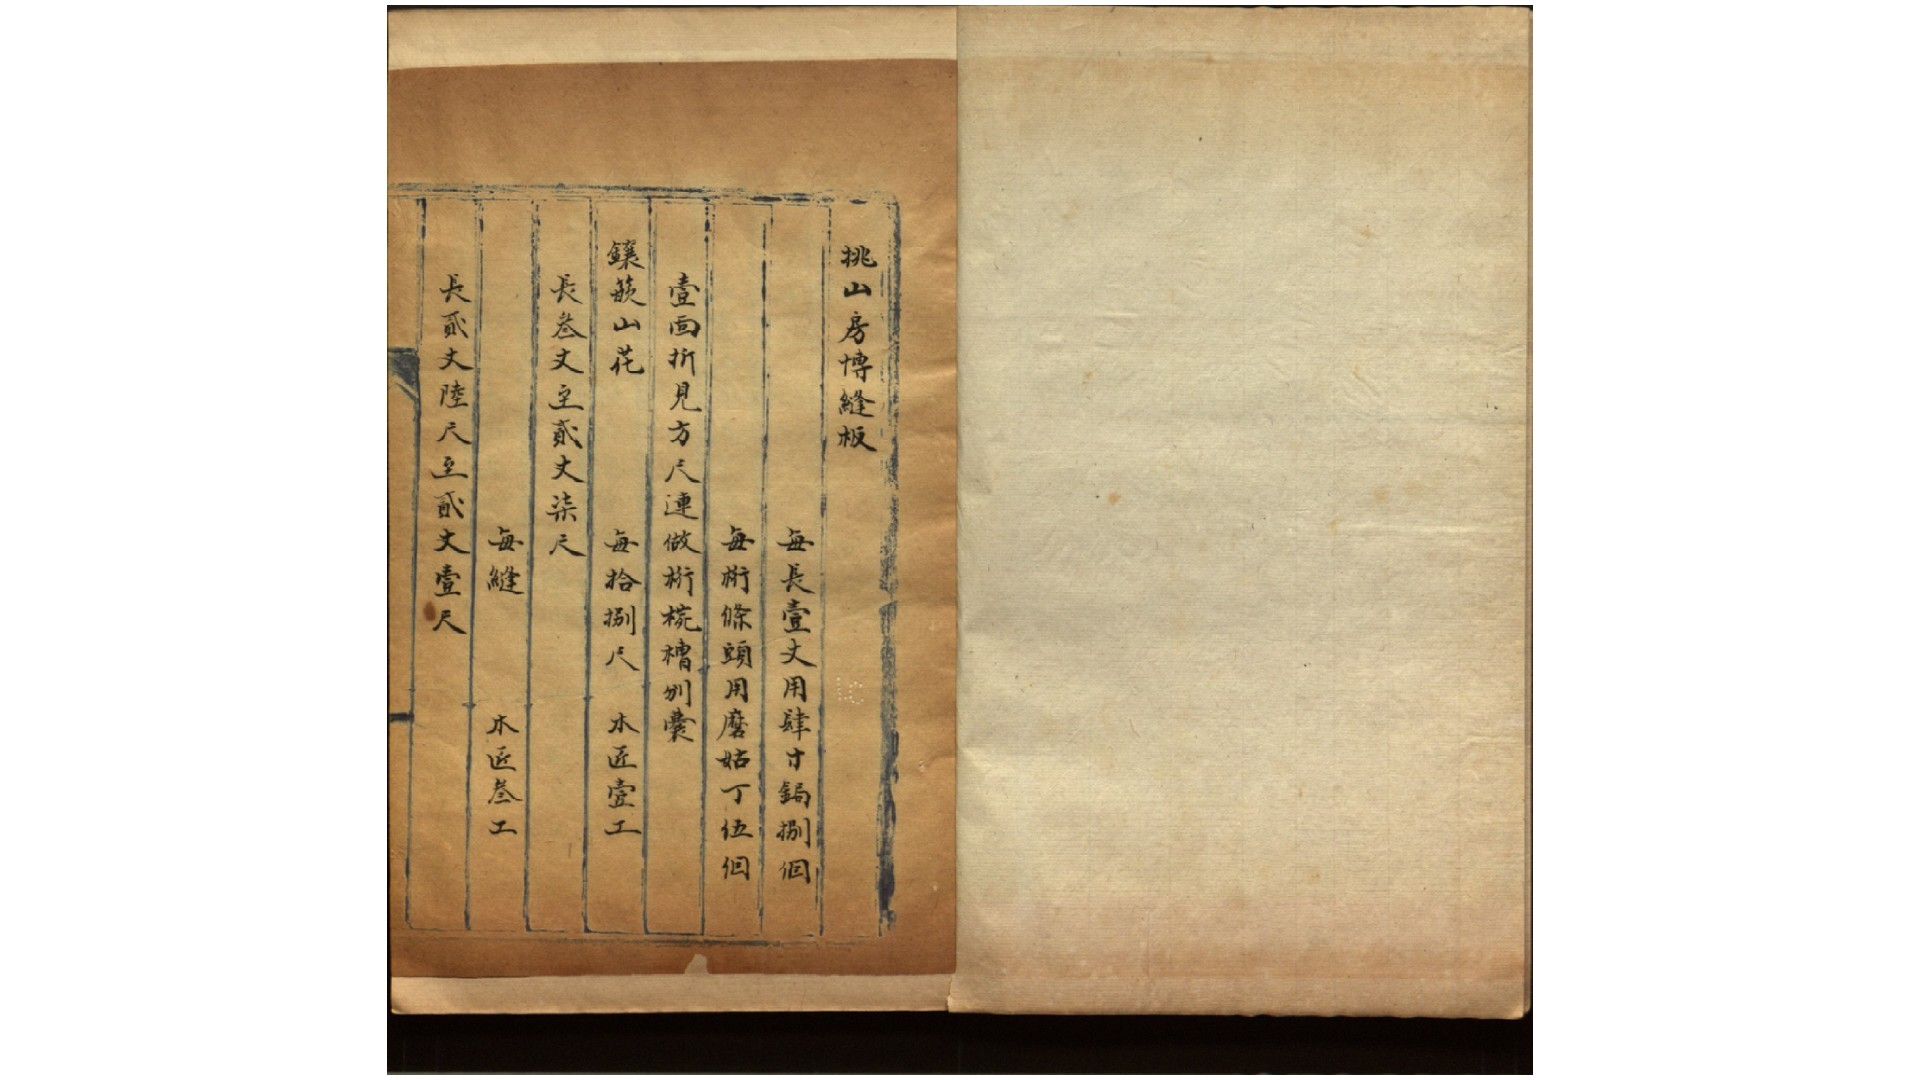 挑山房博縫板
每長壹丈用肆寸鋦捌個
每桁條頭用磨姑丁伍個
壹面折見方尺連做桁椀槽刱囊
鑲簇山花
每拾捌尺 木匠壹工
長叁丈至貳丈柒尺
每縫 木匠叁工
長貳丈陸尺至貳丈壹尺